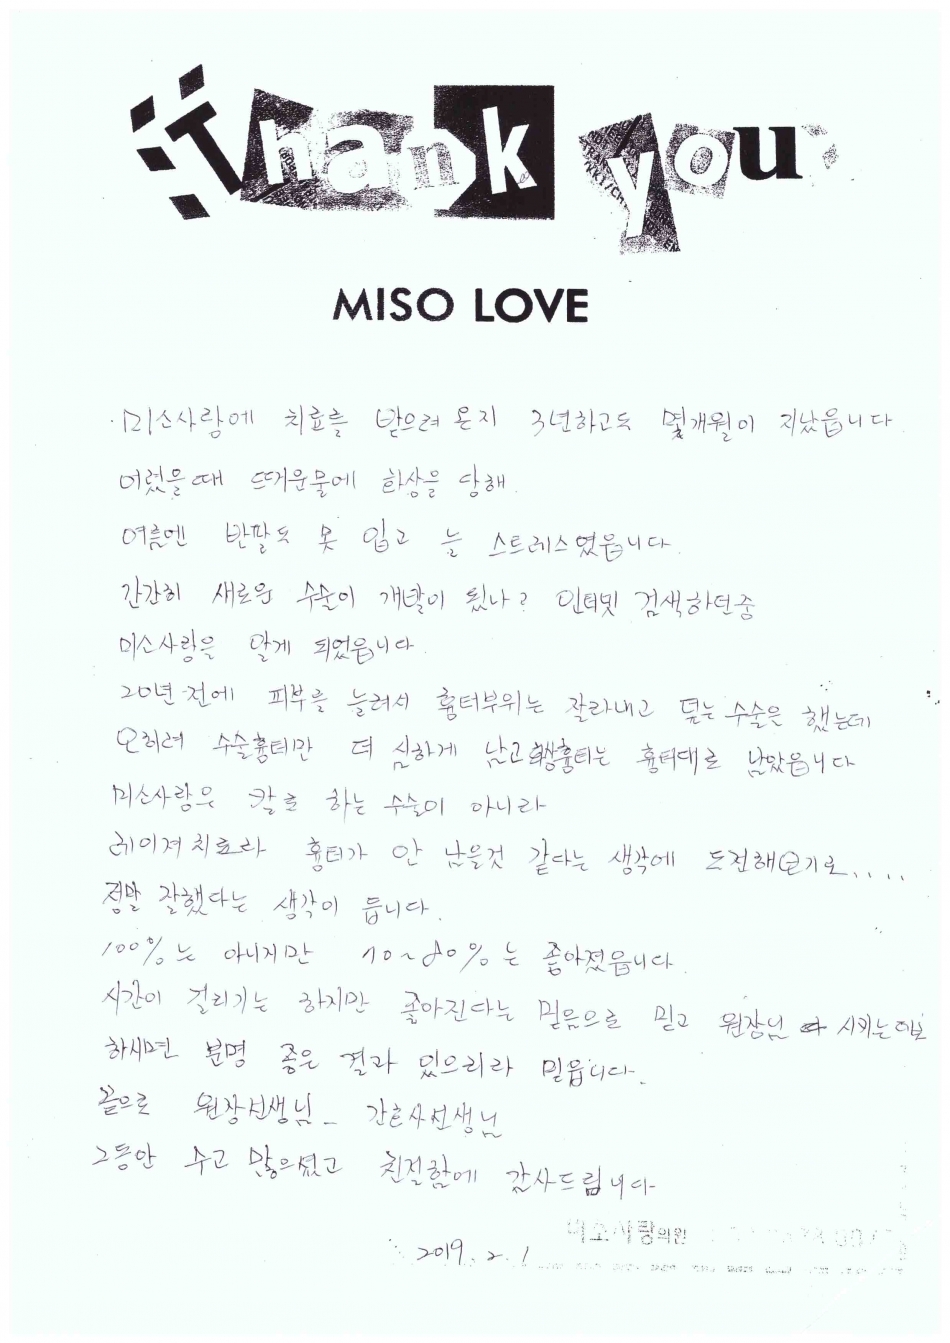 Thank you
MISO LOVE
미소사랑에 치료를 받으려 온지 3년하고도 몇개월이 지났읍니다
어렸을때 뜨거운물에 화상을 당해.
여름엔 반팔도 못 입고 늘 스트레스였읍니다.
간간히 새로운 수술이 개발이 됬나? 인터넷 검색하던중
미소사랑을 알게 되었읍니다.
20년전에 피부를 늘려서 흉터부위는 잘라내고 덮는 수술은 했는데
오히려 수술흉터만 더 심하게 남고 화상흉터는 흉터대로 남았읍니다
미소사랑은 칼로 하는 수술이 아니라
레이져치료라 흉터가 안 남을것 같다는 생각에 도전해보기로.....
정말 잘했다는 생각이 듭니다.
100%는 아니지만 70~80%는 좋아졌읍니다.
시간이 걸리기는 하지만 좋아진다는 믿음으로 믿고 원장님 시키는대로
하시면 분명 좋은 결과 있으리라 믿읍니다.
끝으로 원장선생님_ 간호사선생님
그동안 수고 많으셨고 친절함에 감사드립니다
미소사랑의원
2019.2.1